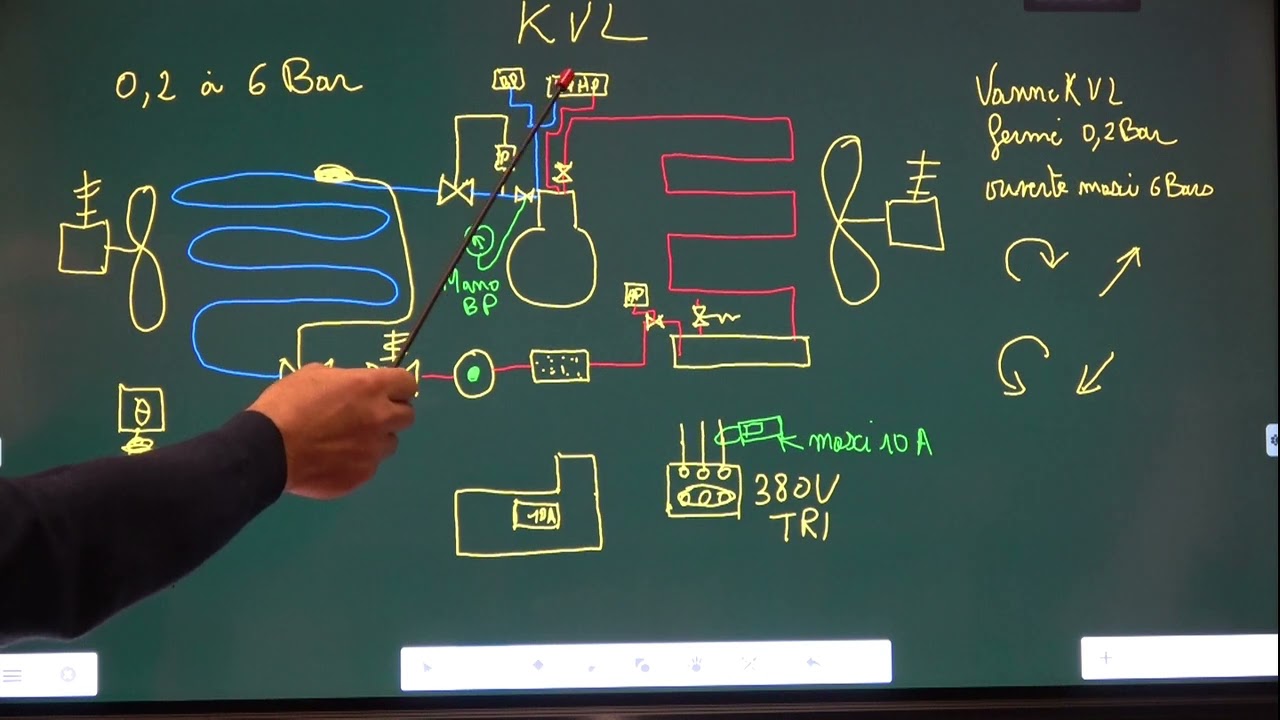 KVL
0,2 à 6 Bar
BP
HP
P
Vanne KVL
fermé 0,2 Bar
ouverte maxi 6 Bars
Mano
BP
θ
maxi 10 A
10A
380V
TRI